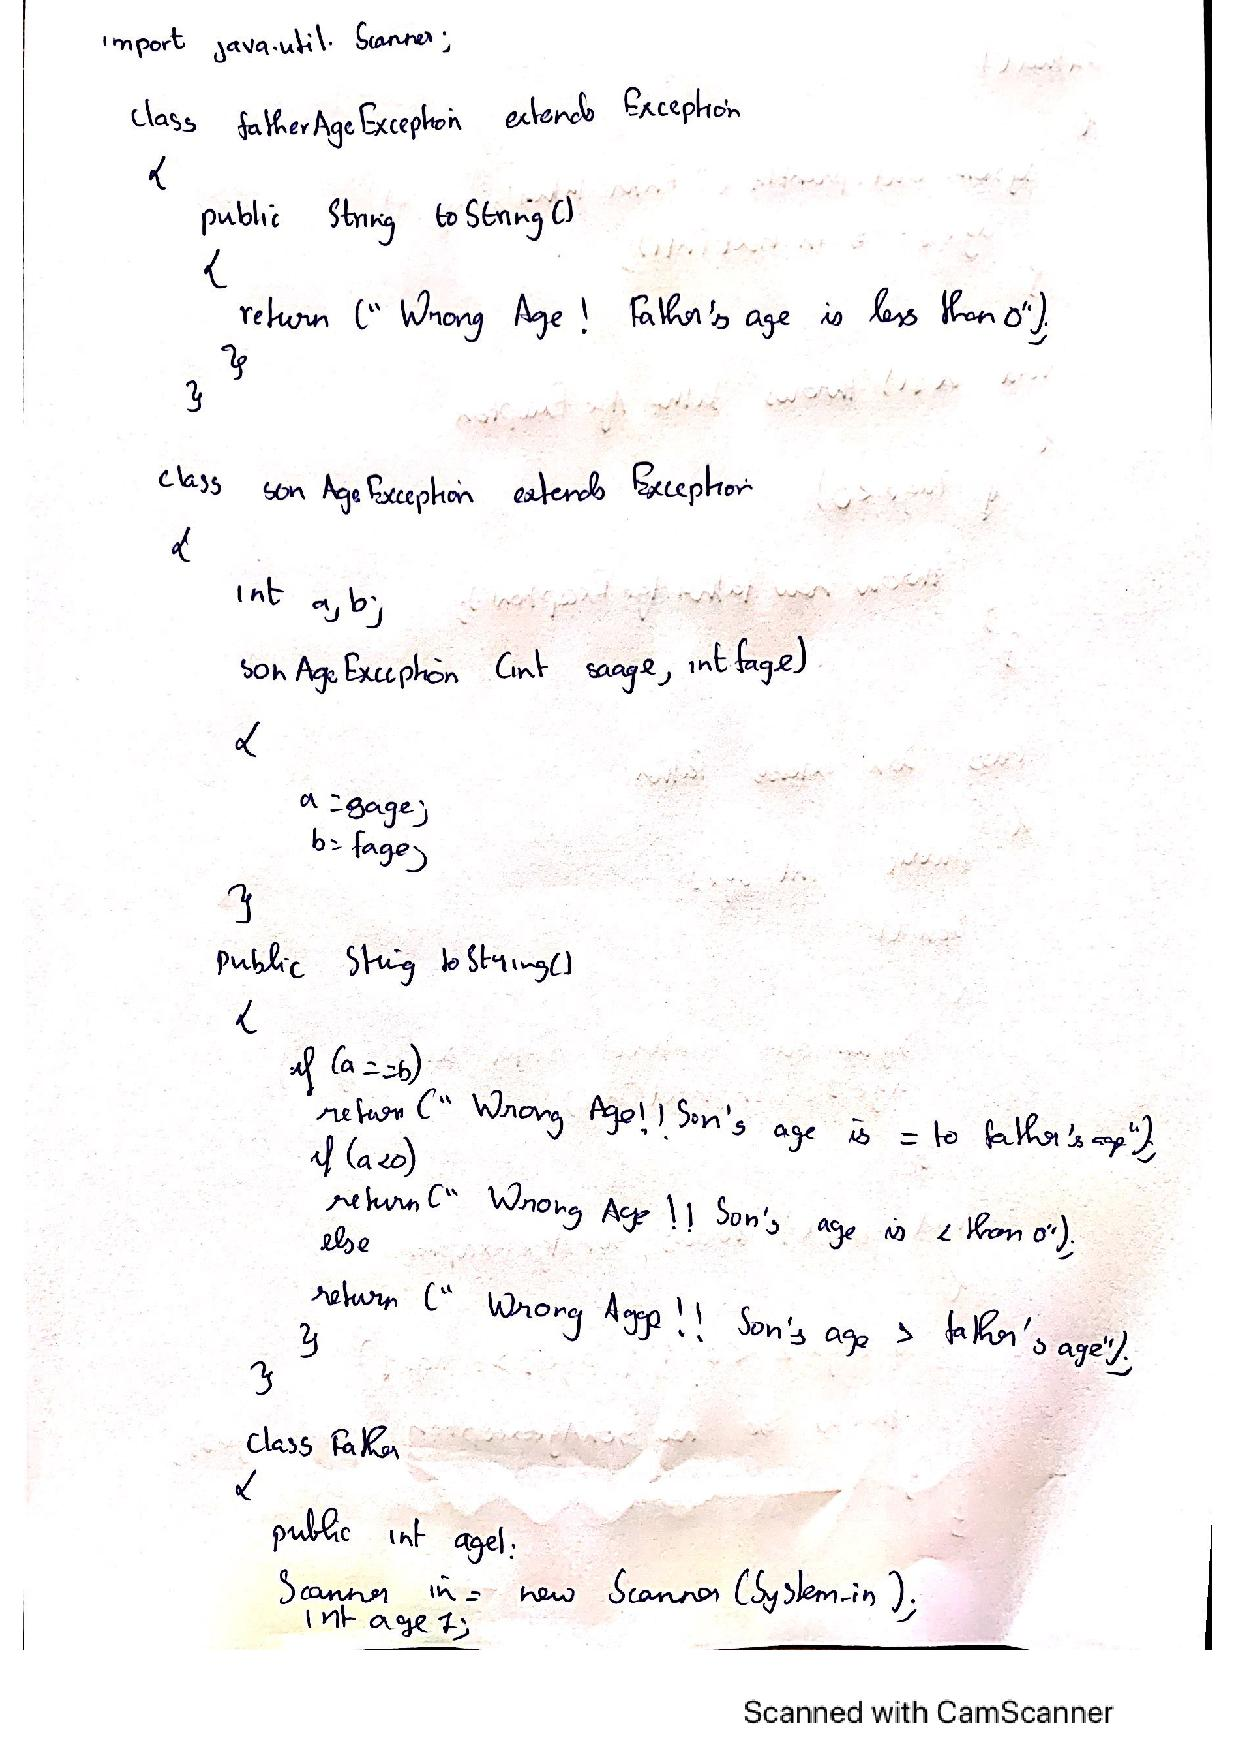 import java.util. Scanner;
class fatherAgeException extends Exception
{
public String toString()
{
return (" Wrong Age! Father's age is less than 0");
}
}
class son Age Exception extends Exception
{
int a, b;
son Age Exception (int saage, int fage)
{
a = sage;
b = fage;
}
public String toString()
{
if (a==b)
return (" Wrong Age!! Son's age is = to father's age");
if (a<0)
return (" Wrong Age !! Son's age is < than 0");
else
return (" Wrong Agge !! Son's age > father's age");
}
}
class Father
{
public int age1;
Scanner in = new Scanner (System.in);
int age 1;
Scanned with CamScanner